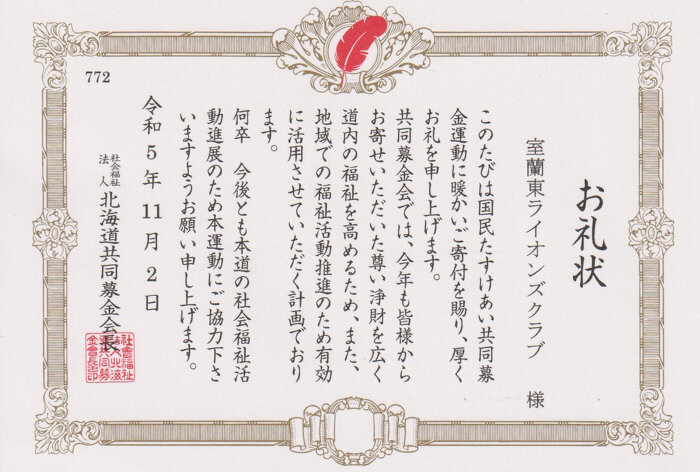 772
お礼状
室蘭東ライオンズクラブ 様
このたびは国民たすけあい共同募
金運動に暖かいご寄付を賜り、厚く
お礼を申し上げます。
共同募金会では、今年も皆様から
お寄せいただいた尊い浄財を広く
道内の福祉を高めるため、また、
地域での福祉活動推進のため有効
に活用させていただく計画でおり
ます。
何卒 今後とも本道の社会福祉活
動進展のため本運動にご協力下さ
いますようお願い申し上げます。
令和5年11月2日
社会福祉法人 北海道共同募金会長